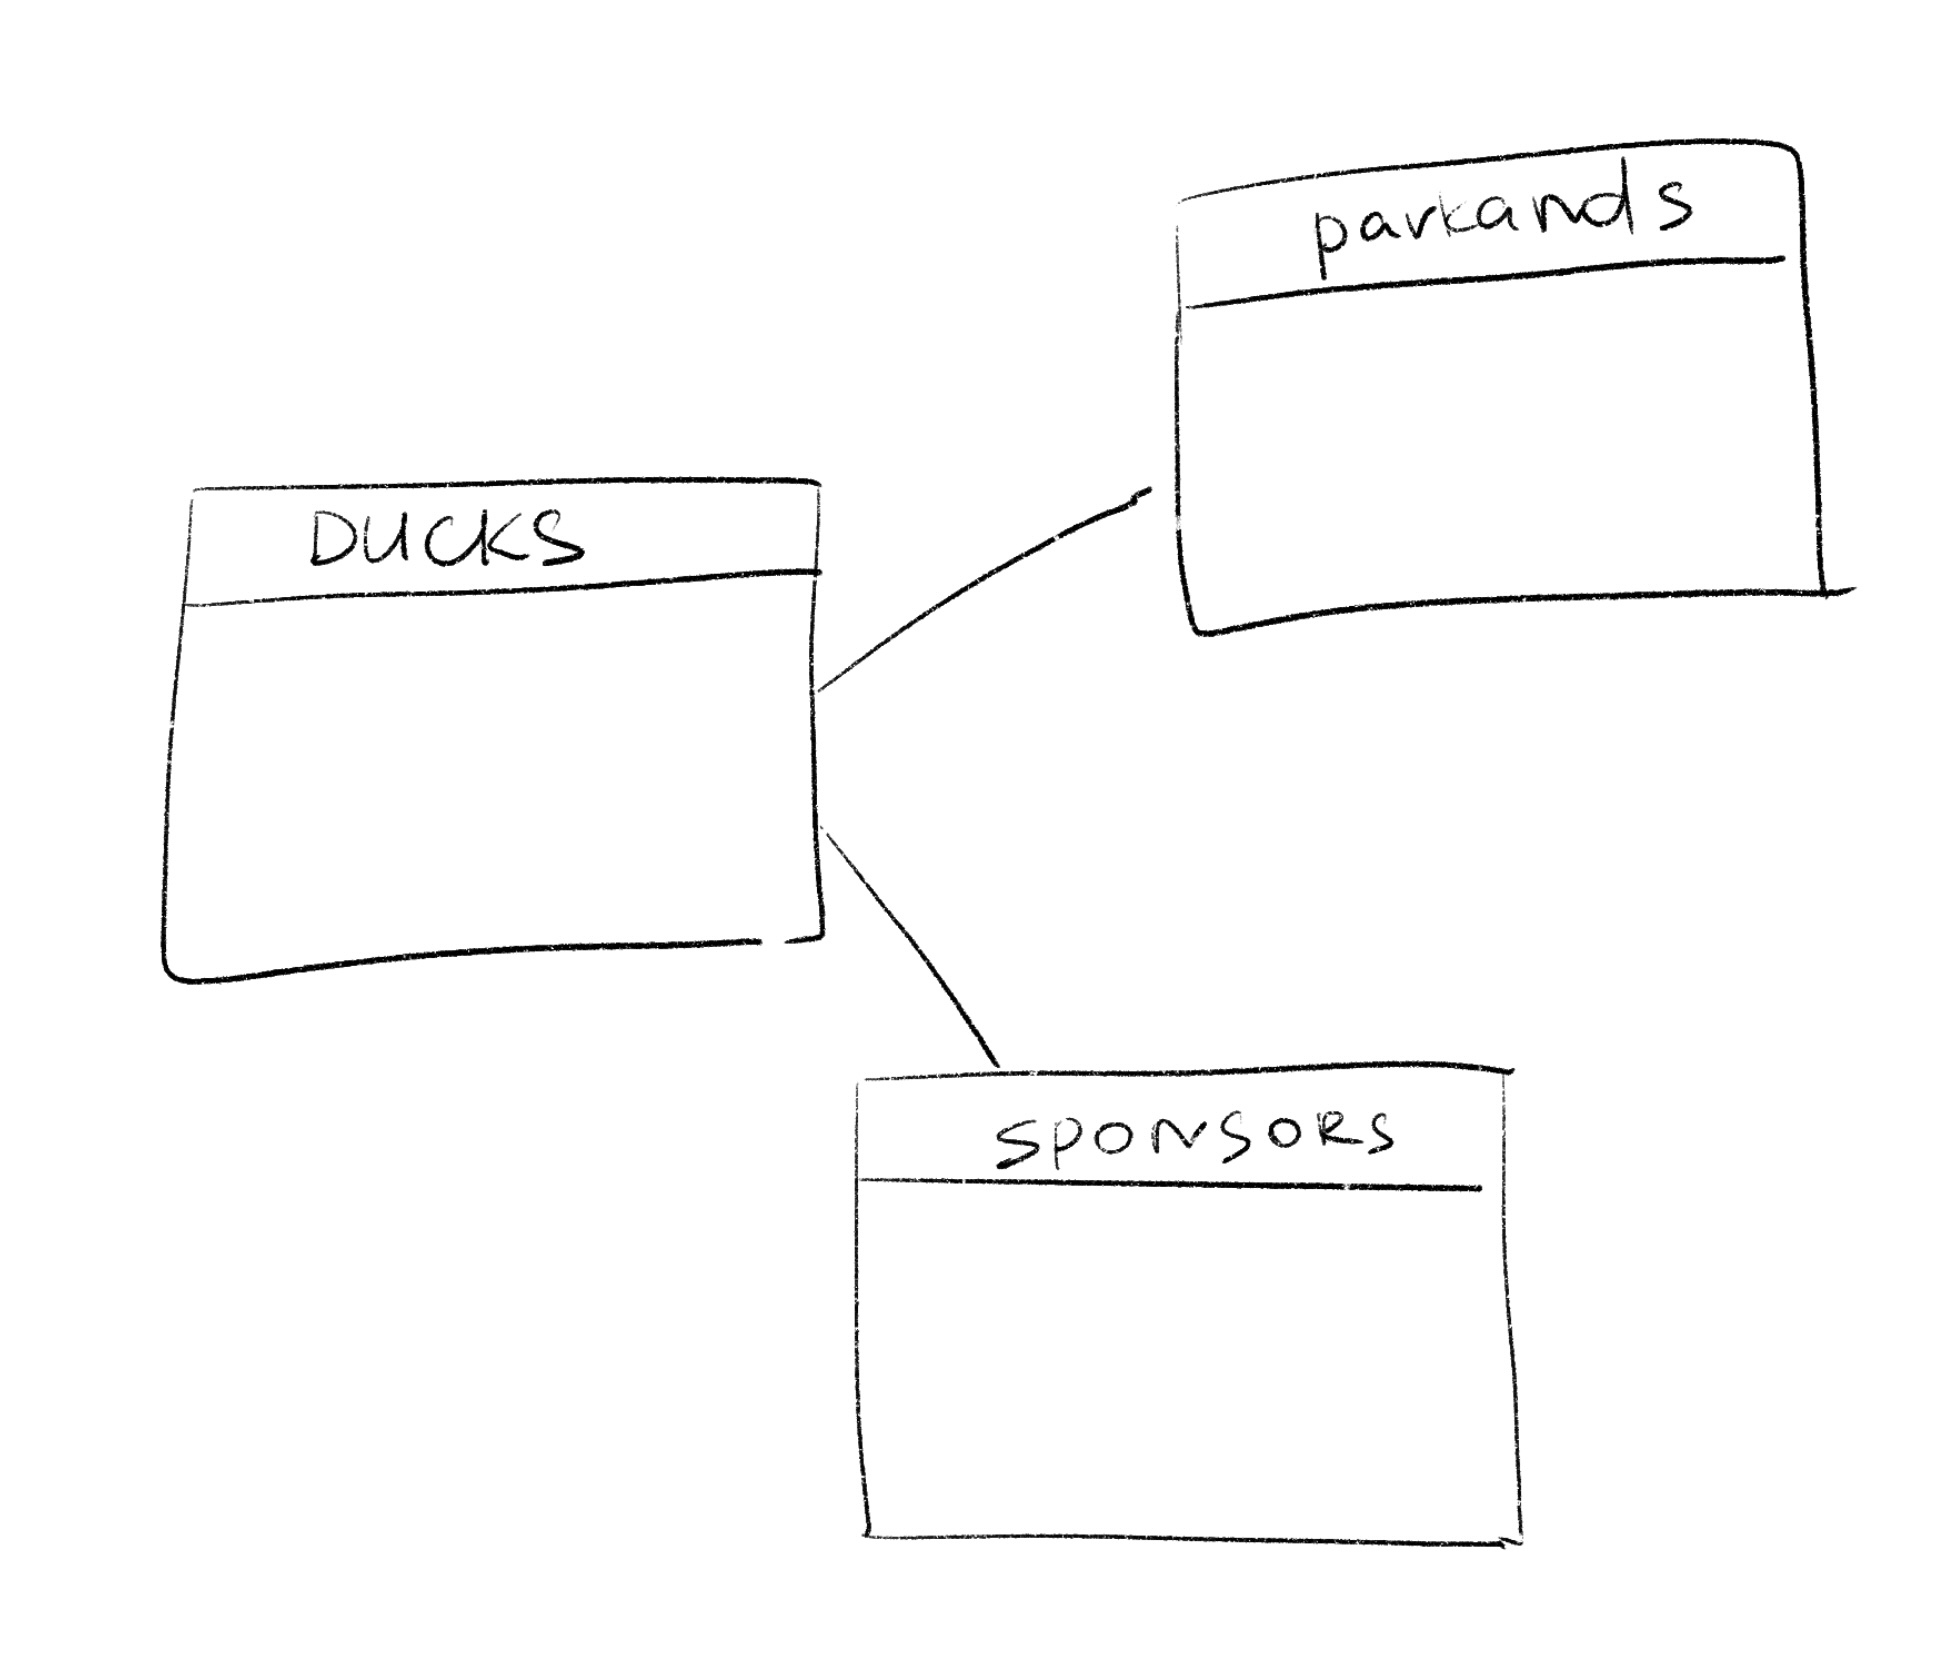 parkands
DUCKS
SPONSORS